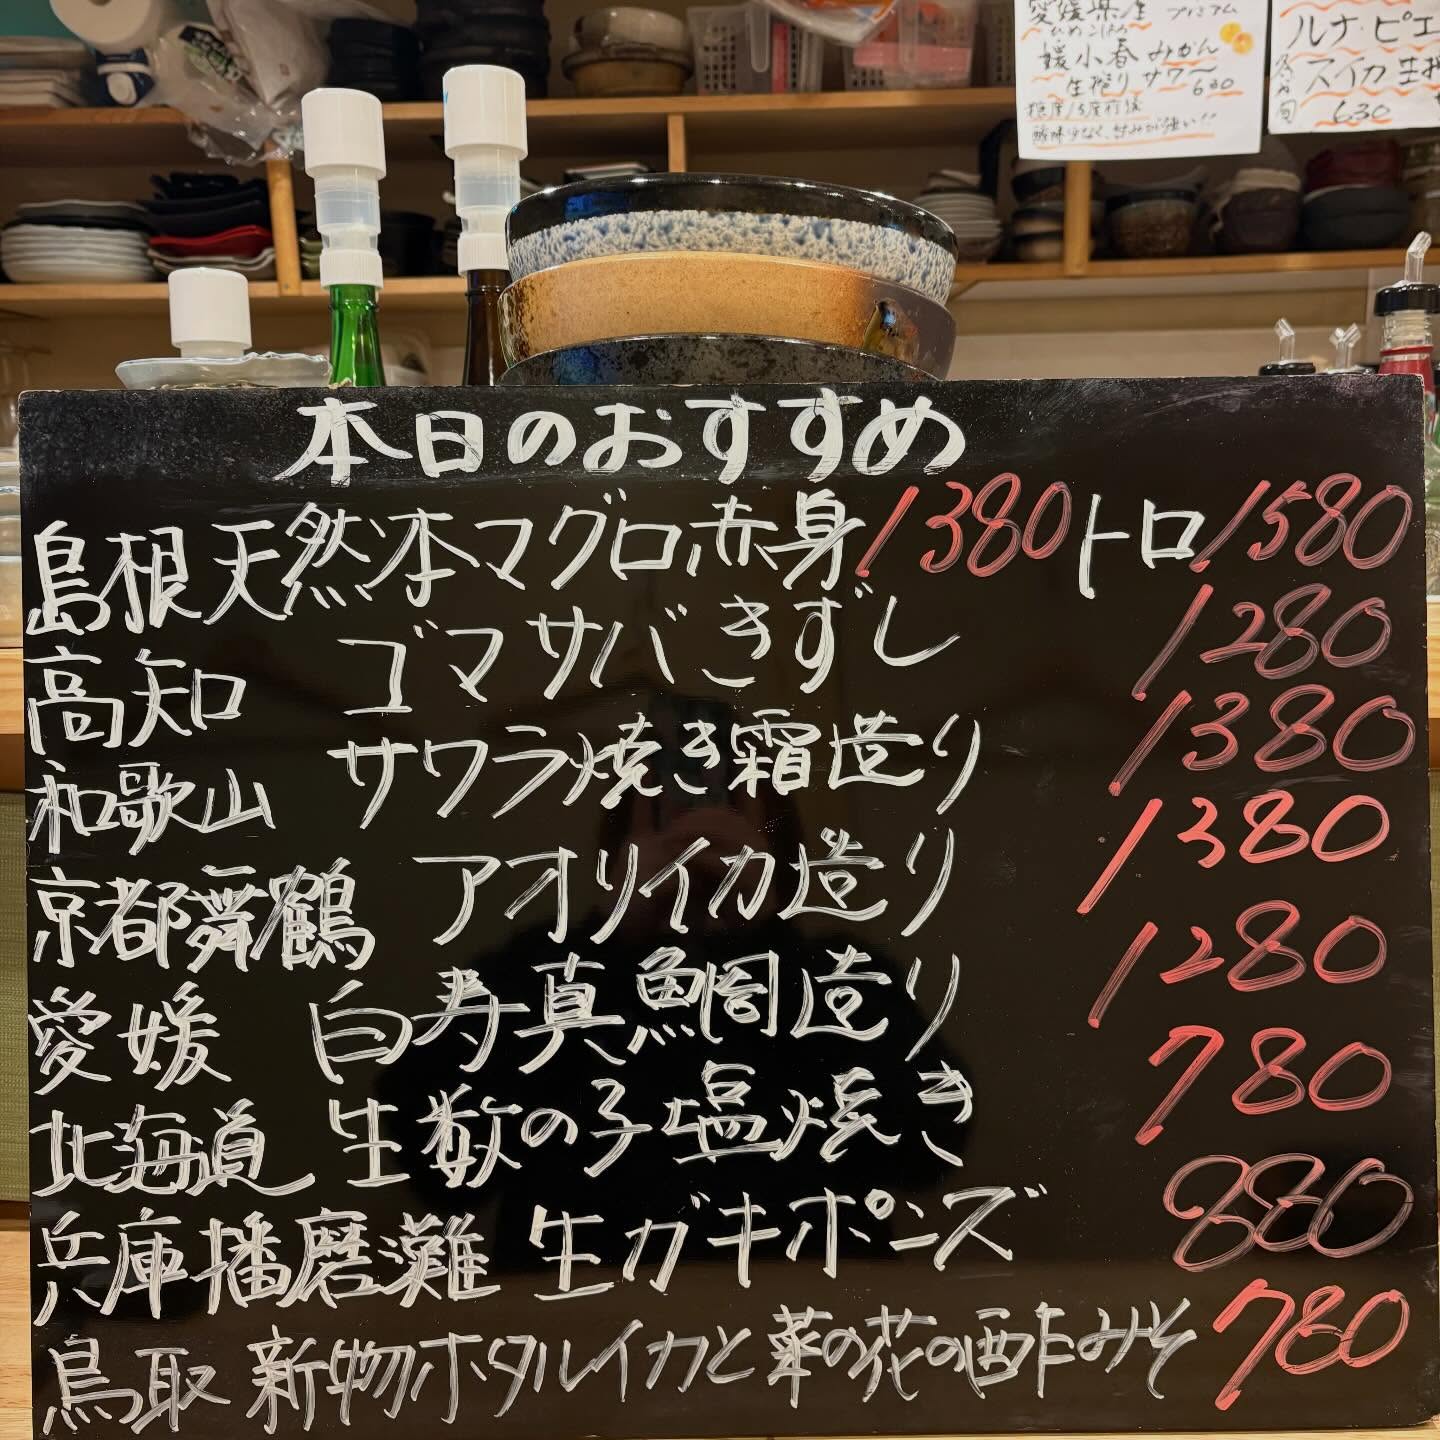 愛媛県産 プレミアム
ひめこはる
媛小春みかん
生搾りサワー
630
糖度15度前後
酸味少なく、甘みが強い!!
ルナ・ピエ
スイカ生搾
630
本日のおすすめ
島根天然本マグロ赤身 1380 トロ 1580
高知 ゴマサバきずし 1280
和歌山 サワラ焼き霜造り 1380
京都舞鶴 アオリイカ造り 1380
愛媛 白寿真鯛造り 1280
北海道 生数の子塩焼き 780
兵庫播磨灘 生ガキポンズ 880
鳥取 新物ホタルイカと菜の花の酢みそ 780